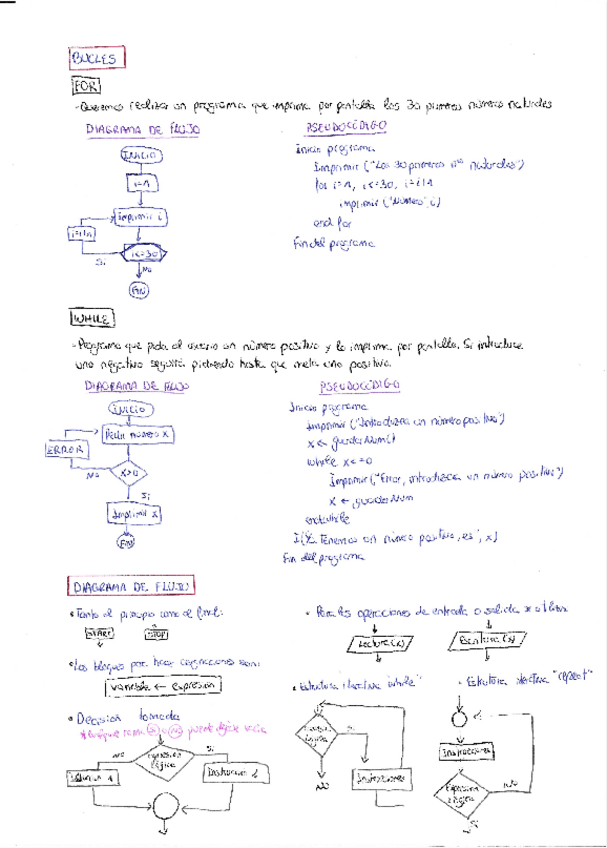 BUCLES
FOR
- Queremos realizar un programa que imprima por pantalla los 30 primeros números naturales
DIAGRAMA DE FLUJO
INICIO
i=1
Imprimir i
i=i+1
i<=30
Si
No
FIN
PSEUDOCÓDIGO
Inicio programa
Imprimir ("Los 30 primeros nos naturales")
for i=1, i<=30, i=i+1
imprimir ("Número", i)
end for
Fin del programa
WHILE
- Programa que pida al usuario un número positivo y lo imprima por pantalla. Si introduce
uno negativo seguirá pidiendo hasta que meta uno positivo.
DIAGRAMA DE FLUJO
INICIO
Pedir número x
ERROR
x>0
No
Si
Imprimir x
FIN
PSEUDOCÓDIGO
Inicio programa
Imprimir ("Introduzca un número positivo")
x ← guardarNum()
while x<=0
Imprimir ("Error, introduzca un número positivo")
x ← guardarNum
endwhile
Tenemos un número positivo, es", x)
Fin del programa
DIAGRAMA DE FLUJO
• Tanto al principio como al final:
START
STOP
• Los bloques para hacer asignaciones son:
variable ← expresión
• Decisión tomada
no
Expresión lógica
Si
Instrucción 2
• Para las operaciones de entrada o salida se utiliza
Lectura(x)
Escritura(x)
• Estructura iterativa "while"
Expresión lógica
Si
NO
Instrucciones
• Estructura iterativa "repeat"
Instrucciones
Expresión lógica
No
Si